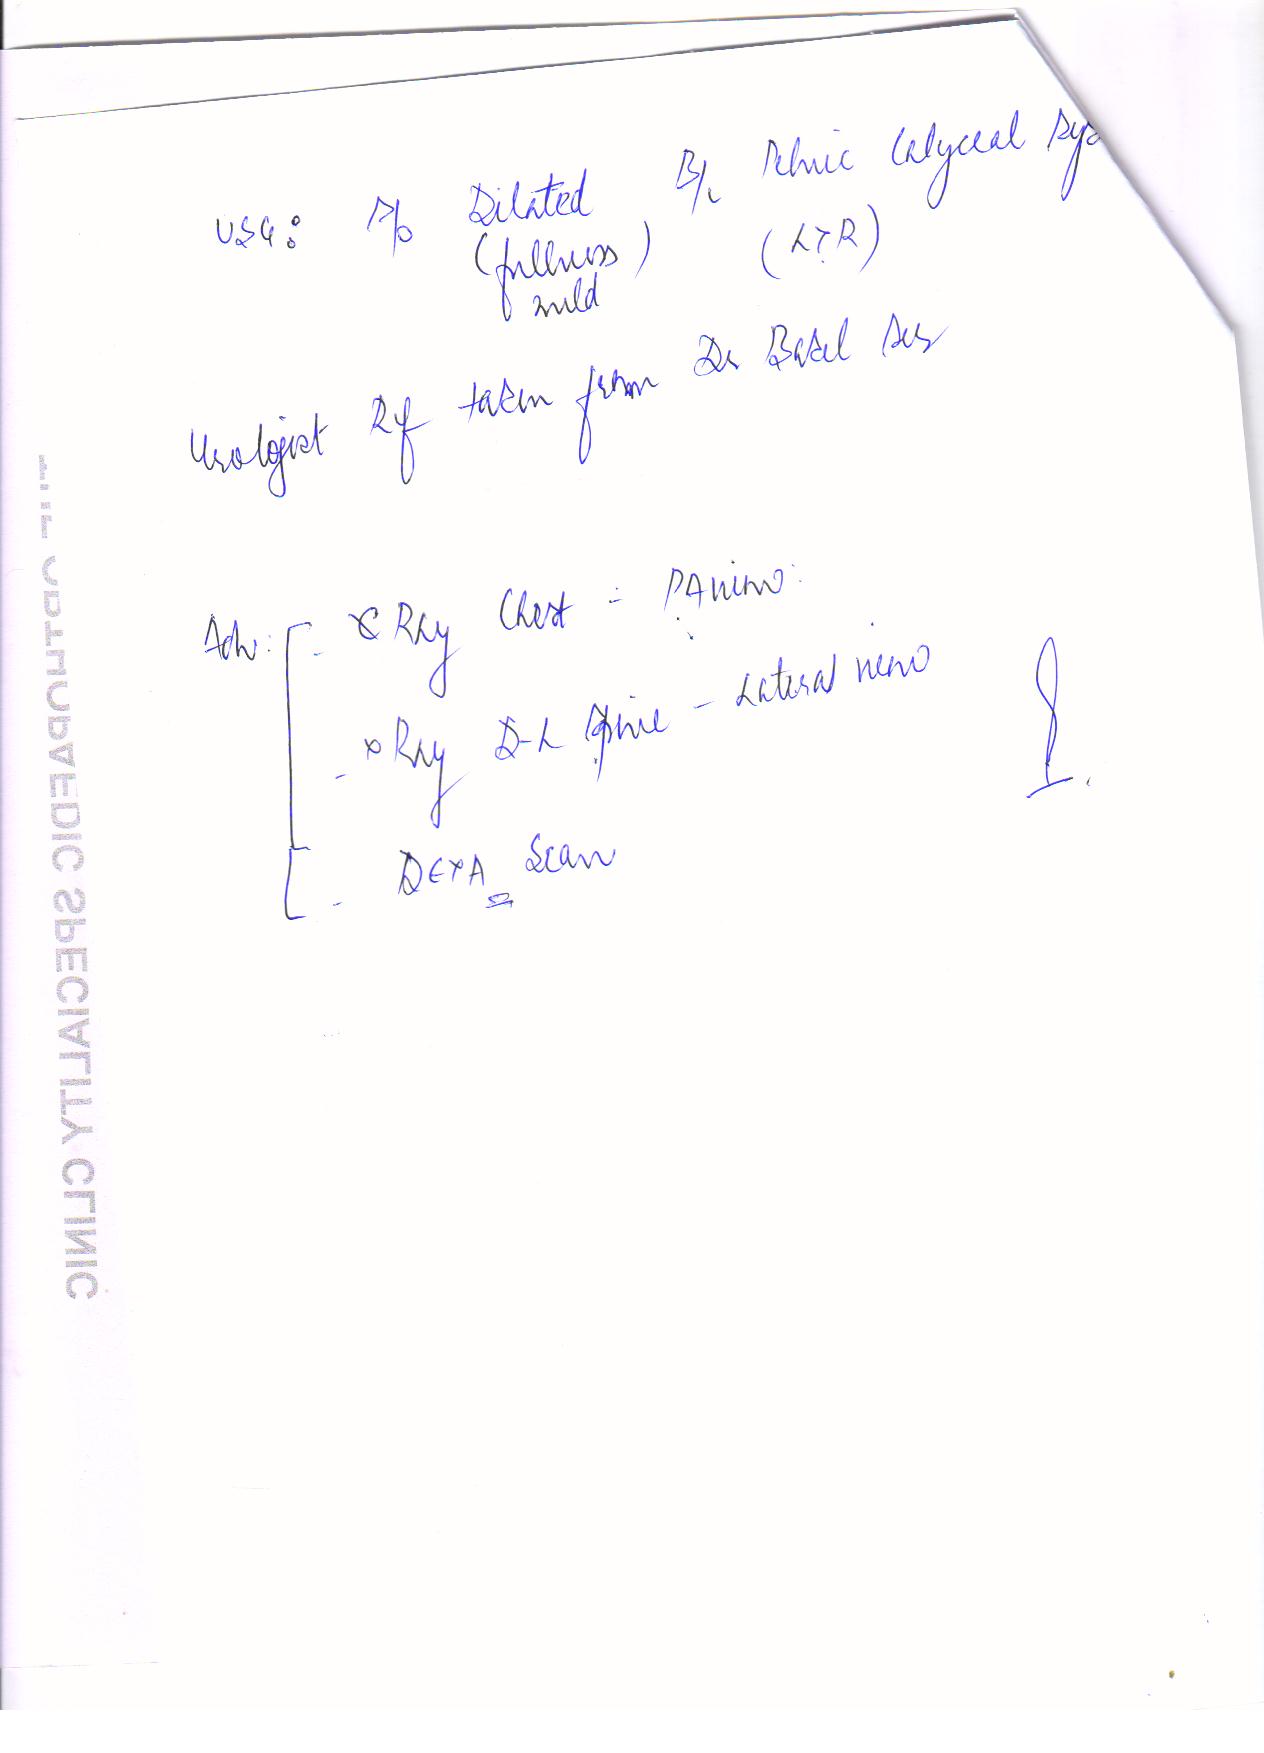 USG: S/o Dilated B/L Pelvic Calyceal Sys
(fullness) (L>R)
mild
Urologist Ref taken from Dr
Adv: - X Ray Chest - PA view
- X Ray D-L Spine - Lateral view
- DEXA Scan
ORTHOPAEDIC SPECIALITY CLINIC